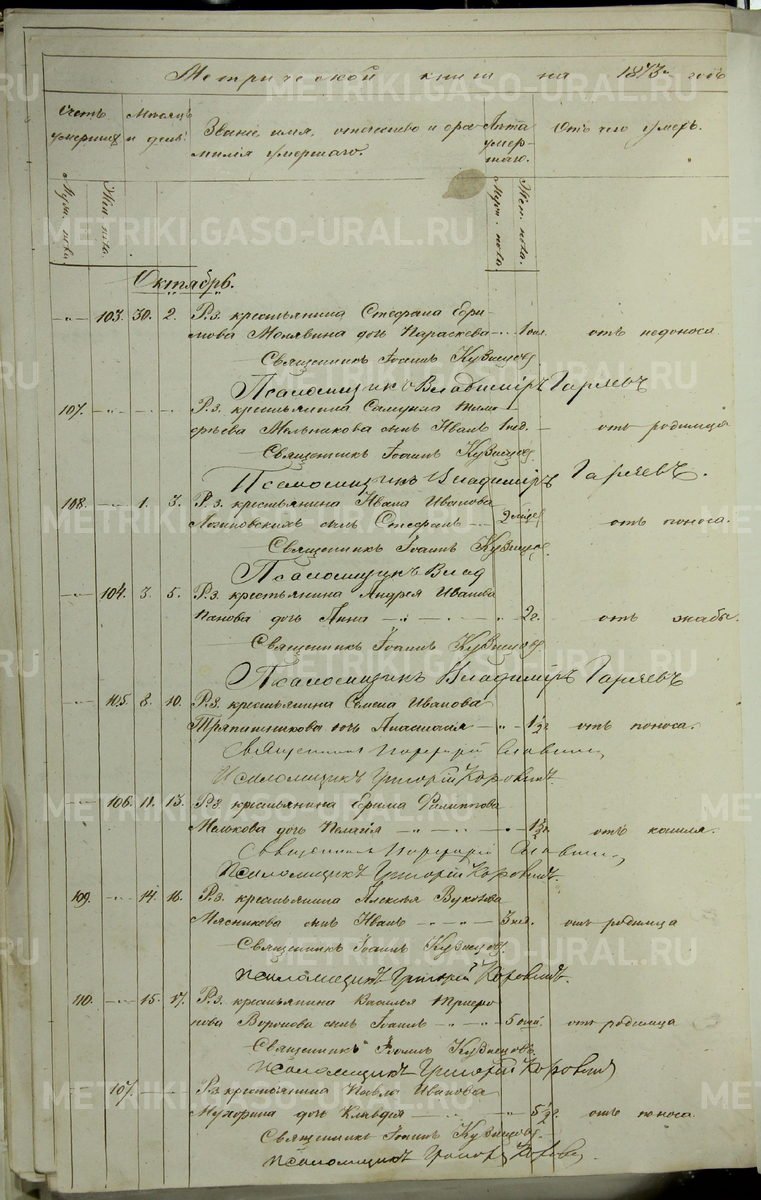 Метрической книги на 1873й годъ
Счетъ умершихъ
Мѣсяцъ и день
Званіе, имя, отчество и фамилія умершаго.
Лѣта умершаго.
Отъ чего умеръ.
Муж. пола.
Жен. пола.
Муж. пола.
Жен. пола.
METRIKI.GASO-URAL.RU
Октябрь.
103. 30. 2. Р. з. крестьянина Стефана Ефи-
мова дочь Параскева 1 отъ недоноса
Священникъ Іоаннъ Кузнецов
Псаломщикъ Владиміръ Гаряевъ
107. Р. з. крестьянина Самуила Тимо-
фѣева Мельникова сынъ Иванъ 1 нед. отъ родимца
Священникъ Іоаннъ Кузнецов
Псаломщикъ Владиміръ Гаряевъ.
108. 1. 3. Р. з. крестьянина Ивана Иванова
сынъ Стефанъ 2 отъ поноса.
Священникъ Іоаннъ Кузнецов
Псаломщикъ Влад
104. 3. 5. Р. з. крестьянина Андрея Иванова
Панова дочь Анна 2 г. отъ жабы.
Священникъ Іоаннъ Кузнецов
Псаломщикъ Владиміръ Гаряевъ
105. 8. 10. Р. з. крестьянина Семена Иванова
Тряпишникова дочь Анастасія 1½ г отъ поноса.
Священникъ Порфирій Славнин
Псаломщикъ Григорій Коровинъ.
106. 11. 13. Р. з. крестьянина Ефима Филиппова
дочь Пелагія 1½ отъ кашля.
Священникъ Порфирій Славнин
Псаломщикъ Григорій Коровинъ.
109. 14. 16. Р. з. крестьянина Алексѣя
Мясникова сынъ Иванъ 3 отъ родимца
Священникъ Іоаннъ Кузнецов
Псаломщикъ Григорій Коровинъ.
110. 15. 17. Р. з. крестьянина Василья
Воронова сынъ Іоаннъ 5 отъ родимца
Священникъ Іоаннъ Кузнецовъ.
Псаломщикъ Григорій Коровинъ
107. Р. з. крестьянина Павла Иванова
Мухорина дочь Клавдія 5½ г. отъ поноса.
Священникъ Іоаннъ Кузнецов.
Псаломщикъ Григор Корови